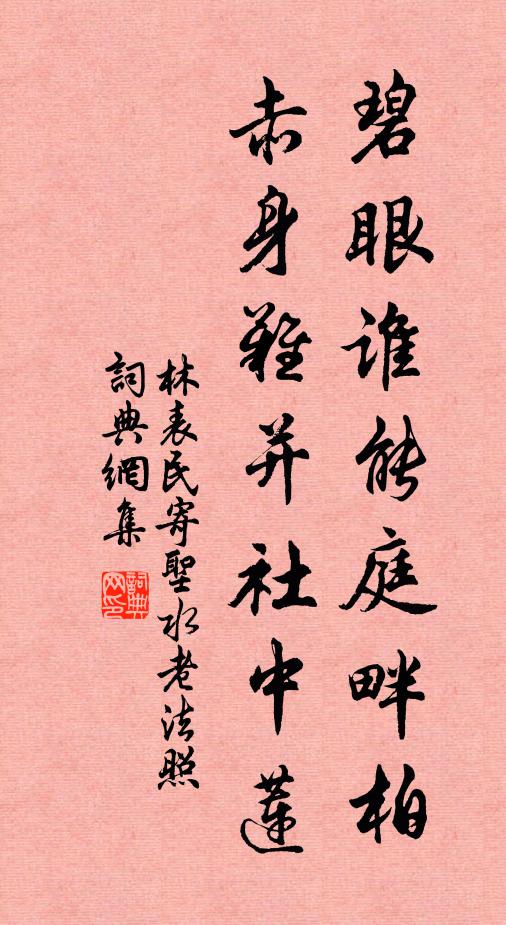 碧眼谁能庭畔柏
赤身难并社中蓮
林表民寄聖水老法照
詞典網集
詞典网印